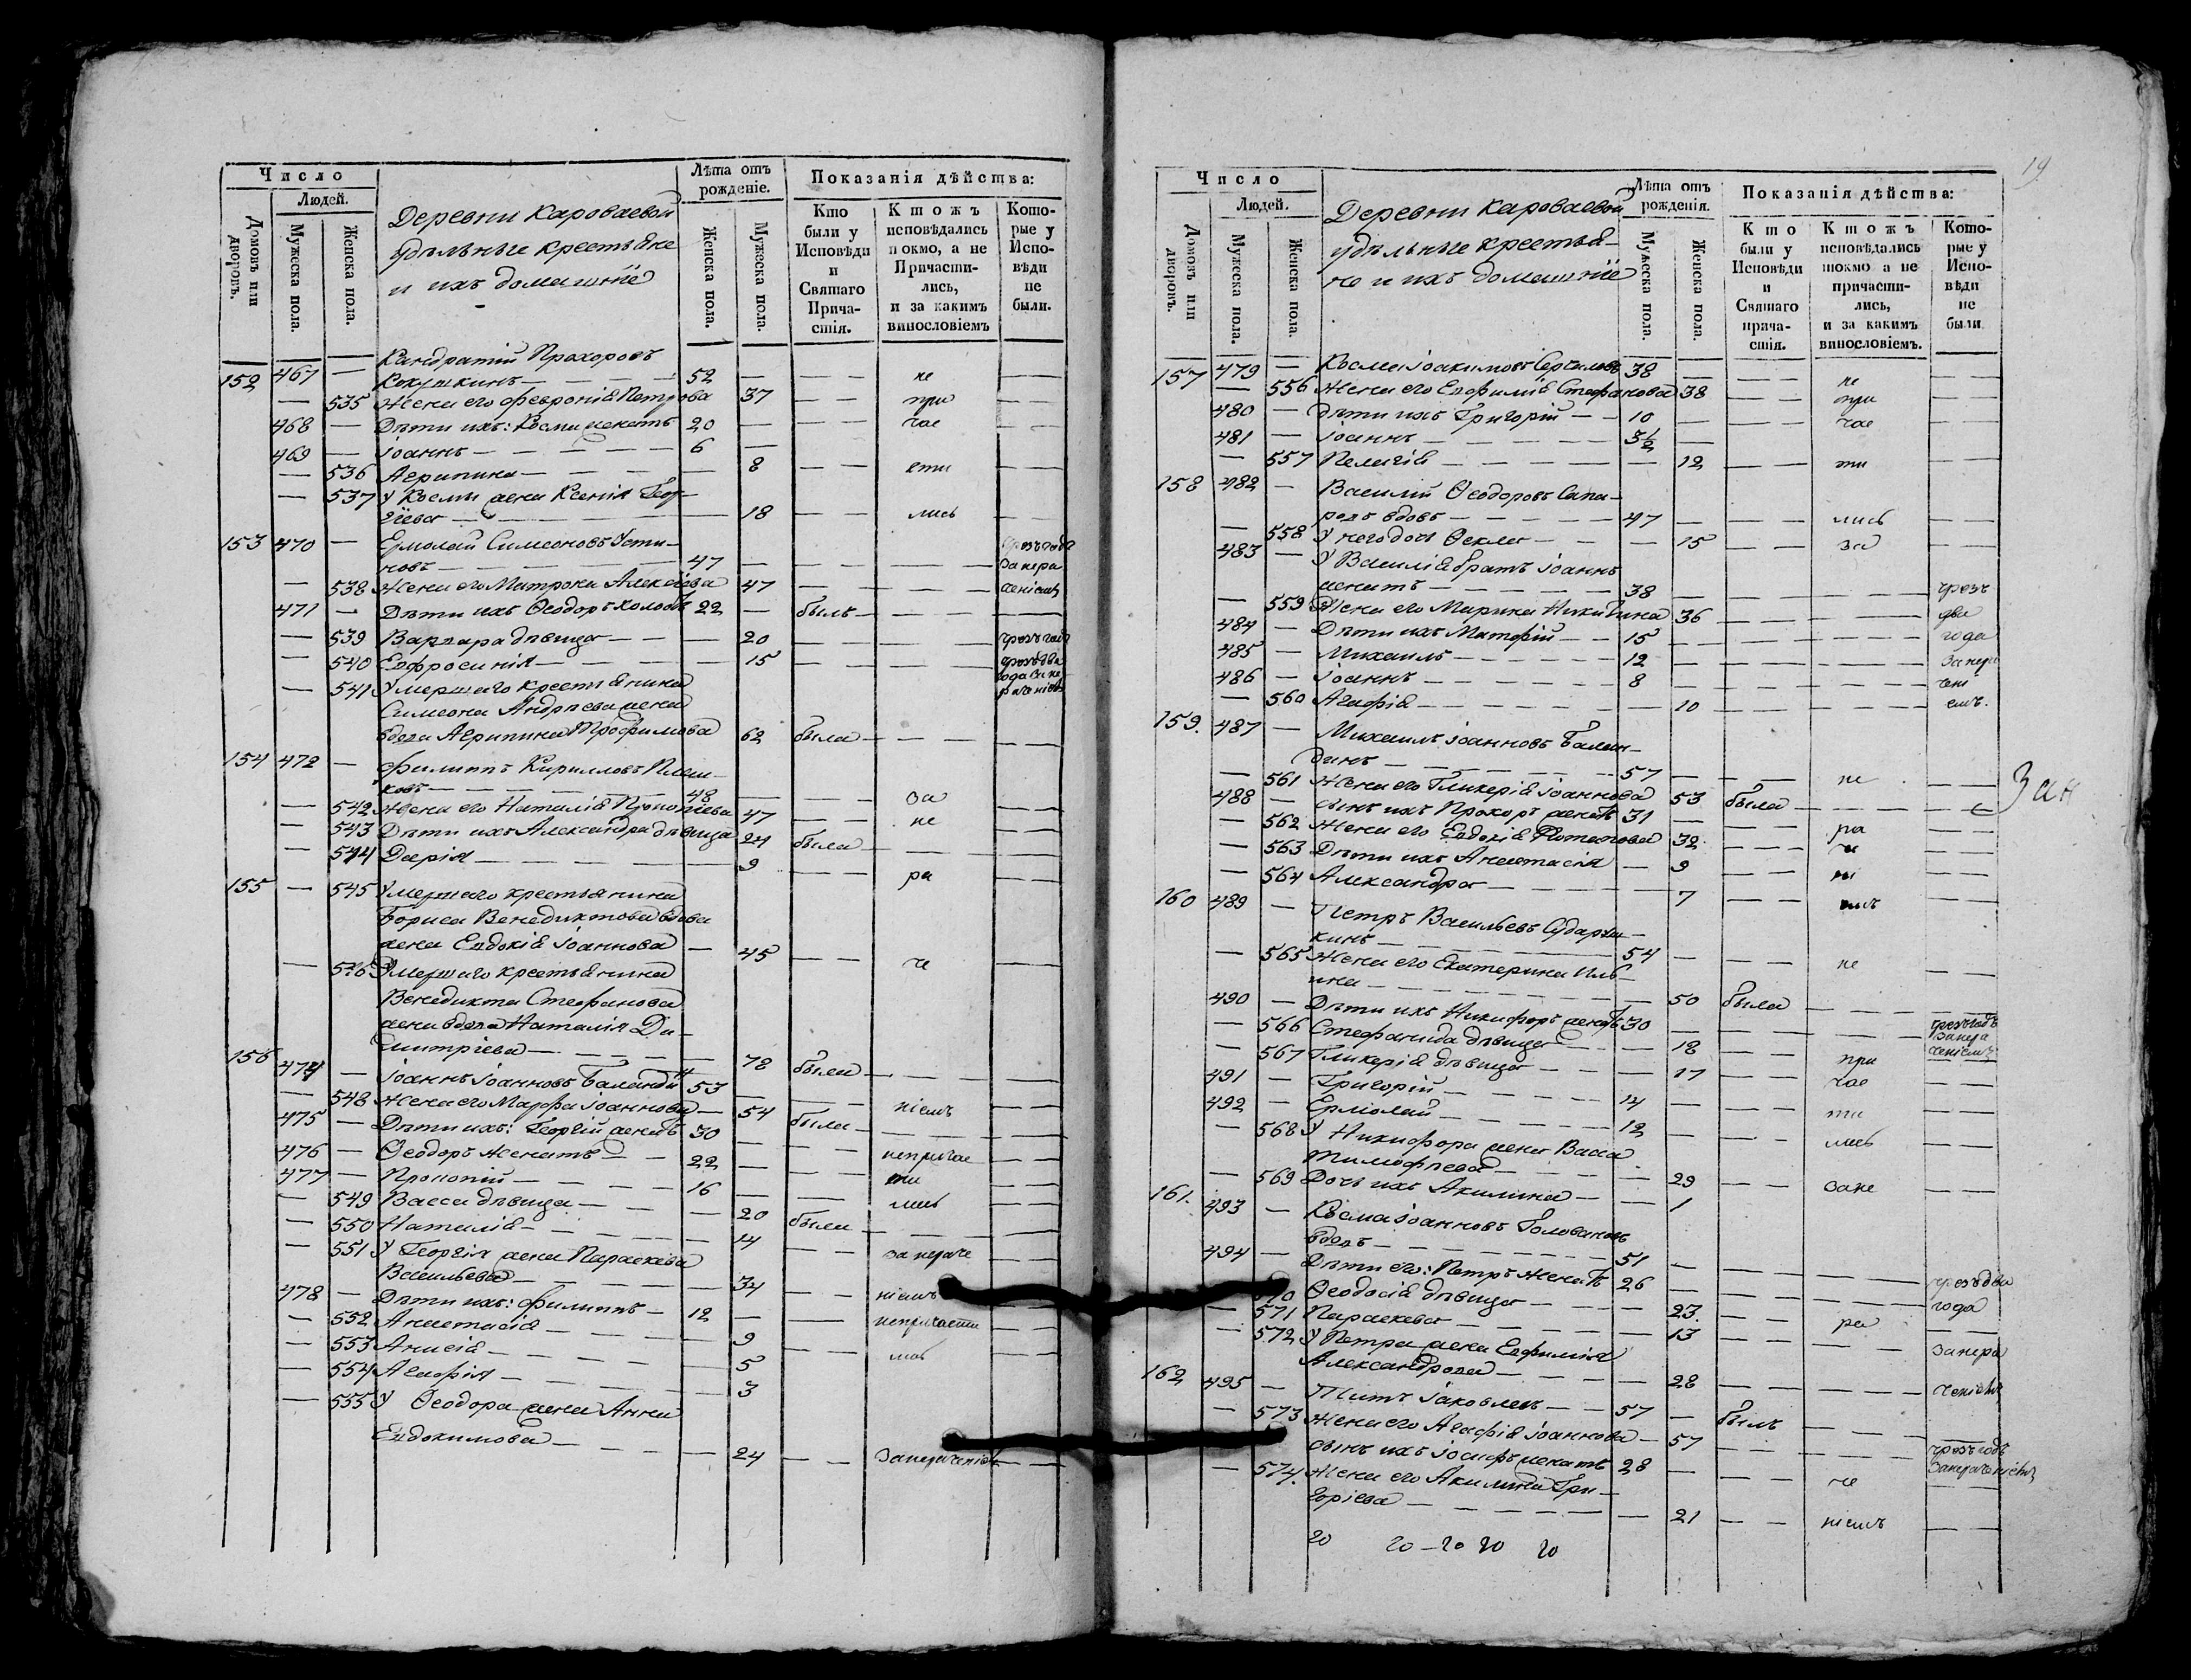 Число
Людей.
Домовъ или дворовъ.
Мужеска пола.
Женска пола.
Деревни Кароваевой
удѣльные крестьяне
и ихъ домашніе
Лѣта отъ рожденіе.
Женска пола.
Мужеска пола.
Показанія дѣйства:
Кто были у Исповѣди и Святаго Прича-стія.
Ктожъ исповѣдались токмо, а не Причасти-лись, и за какимъ винословіемъ
Кото-рые у Испо-вѣди не были.
Кандратій Прохоровъ
152 467 — Кокушкинъ — 52 — не
— 535 Жена его Февронія Петрова 37 — при
468 — Дѣти ихъ: Косма женатъ 20 — час
469 — Іоаннъ — 6 —
— 536 Агрипина — 8 — сти
— 537 У Космы жена Ксенія Геор-
гіева — 18 — лись
153 470 — Ермолай Симеоновъ Усти- чрезъ годъ
новъ — 47 — за нера
— 538 Жена его Матрона Алексіева 47 — ченіемъ
471 — Дѣти ихъ Ѳеодоръ холостъ 22 — былъ —
— 539 Варвара дѣвица — 20 — чрезъ годъ
— 540 Евфросинія — 15 — чрезъ два
— 541 Умершаго крестьянина года за не
Симеона Андреева жена раченіемъ
вдова Агрипина Трофимова 62 была —
154 472 — Филиппъ Кирилловъ
ковъ — 48 — за
— 542 Жена его Наталія Прокопіева 47 — не
— 543 Дѣти ихъ Александра дѣвица 24 была —
— 544 Дарія — 9 — ра
155 — 545 Умершаго крестьянина
Бориса Венедиктова вдова
жена Евдокія Іоаннова — 45 — че
— 546 Умершаго крестьянина
Венедикта Стефанова
жена вдова Наталія Ди-
митріева — 78 была —
156 474 — Іоаннъ Іоанновъ Баландинъ 53 —
— 548 Жена его Марфа Іоаннова — 54 — ніемъ
475 — Дѣти ихъ: Георгій женатъ 30 была —
476 — Ѳеодоръ женатъ — 22 — непричас
477 — Прокопій — 16 — ти
— 549 Васса дѣвица — 20 — лись
— 550 Наталія — 14 была —
— 551 У Георгія жена Параскева
Васильева — 34 — за нераче
478 — Дѣти ихъ: Филиппъ — 12 — ніемъ
— 552 Анастасія — 9 — непричасти
— 553 Анисія — 5 — лись
— 554 Агафія — 3
— 555 У Ѳеодора жена Анна
Евдокимова — 24 — за нераченіемъ
19
Число
Людей.
Домовъ или дворовъ.
Мужеска пола.
Женска пола.
Деревни Кароваевой
удѣльные крестья-
не и ихъ домашніе
Лѣта отъ рожденія.
Мужеска пола.
Женска пола
Показанія дѣйства:
Кто были у Исповѣди и Святаго прича-стія.
Ктожъ исповѣдались токмо а не причасти-лись, и за какимъ винословіемъ.
Кото-рые у Испо-вѣди не были
157 479 — Косма Іоакимовъ 38 — не
— 556 Жена его Евфимія Стефанова 38 — при
480 — Дѣти ихъ Григорій — 10 — час
481 — Іоаннъ — 3½ —
— 557 Пелагія — 12 — ти
158 482 — Василій Ѳеодоровъ
вдовъ — 47 — лись
— 558 У него дочь Ѳекла — 15 — за
483 — У Василія братъ Іоаннъ
женатъ — 38 — чрезъ
— 559 Жена его Марина Никитина 36 — два
484 — Дѣти ихъ Матфій — 15 — года
485 — Михаилъ — 12 — за нера
486 — Іоаннъ — 8 — чені
— 560 Агафія — 10 — емъ.
159. 487 — Михаилъ Іоанновъ Балан-
динъ — 57 — не
— 561 Жена его Гликерія Іоаннова 53 была —
488 — сынъ ихъ Прохоръ женатъ 31 —
— 562 Жена его Евдокія Потапова 32 — ра
— 563 Дѣти ихъ Анастасія — 9 — че
— 564 Александра — 7 — ні
Зан
160 489 — Петръ Васильевъ емъ
кинъ — 54 — не
— 565 Жена его Екатерина Иль-
ина — 50 была —
490 — Дѣти ихъ Никифоръ женатъ 30 — чрезъ годъ
— 566 Стефанида дѣвица — 18 — за нера
— 567 Гликерія дѣвица — 17 — при ченіемъ
491 — Григорій — 14 — час
492 — Ермолай — 12 — ти
— 568 У Никифора жена Васса лись
Тимофеева — 29 — за не
— 569 Дочь ихъ Акилина — 1
161. 493 — Косма Іоанновъ Головановъ
вдовъ — 51 —
494 — Дѣти его: Петръ женатъ 26 — чрезъ два
570 Ѳеодосія дѣвица — 23. — года
— 571 Параскева — 13 — ра
— 572 У Петра жена Евфимія за нера
Александрова — 28 — ченіемъ
162 495 — Титъ Іаковлевъ — 57 — былъ
— 573 Жена его Агафія Іоаннова — 57 — чрезъ годъ
сынъ ихъ Іосифъ женатъ 28 — за нераченіемъ
— 574. Жена его Акилина Гри- че
горіева — 21 — ніемъ
20 20 — 20 20 20